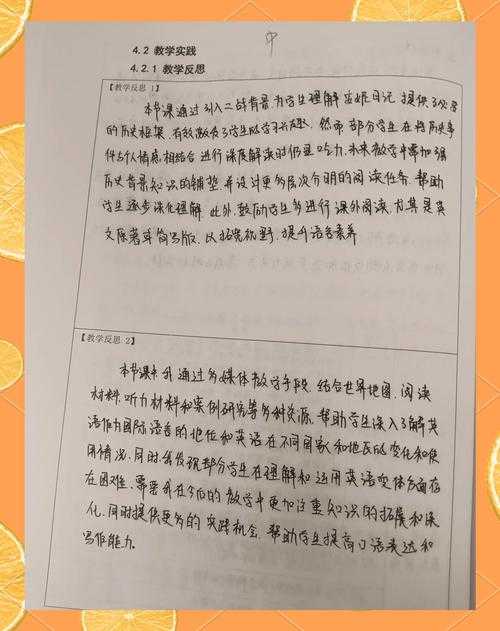 中
4.2 教学实践
4.2.1 教学反思
【教学反思 1】
本节课通过引入二战背景,为学生理解安妮日记提供了必要
的历史框架,有效激发了学生的学习兴趣,然而部分学生在将历史事
件与个人情感相结合进行深度解读时仍显吃力,未来教学中需加强
历史背景知识的铺垫,并设计更多层次分明的阅读任务,帮助
学生逐步深化理解.此外,鼓励学生多进行课外阅读,尤其是英
文原著或简写版,以拓宽视野,提升语言素养.
【教学反思 2】
本节课中我通过多媒体教学手段,结合世界地图,阅读
材料,听力材料和案例研究等多种资源,帮助学生深入了解英
语作为国际语言的地位和英语在不同国家和地区的变化和使
用情况,同时我发现部分学生在理解和运用英语变体方面存
在困难,需要我在今后的教学中更加注重知识的拓展和深
化,同时提供更多的实践机会,帮助学生提高口语表达和
写作能力。